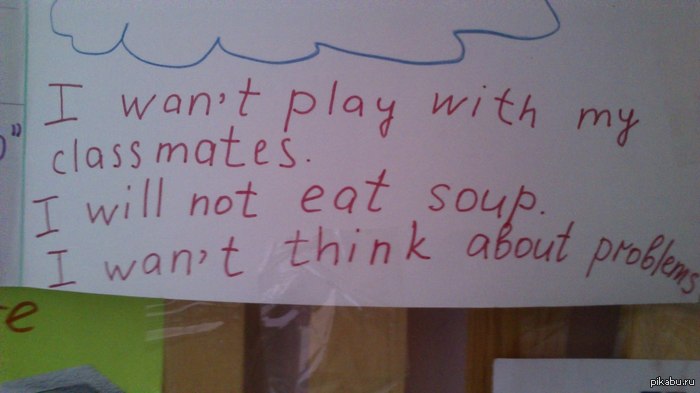 I wan't play with my
classmates.
I will not eat soup.
I wan't think about problems
e
pikabu.ru